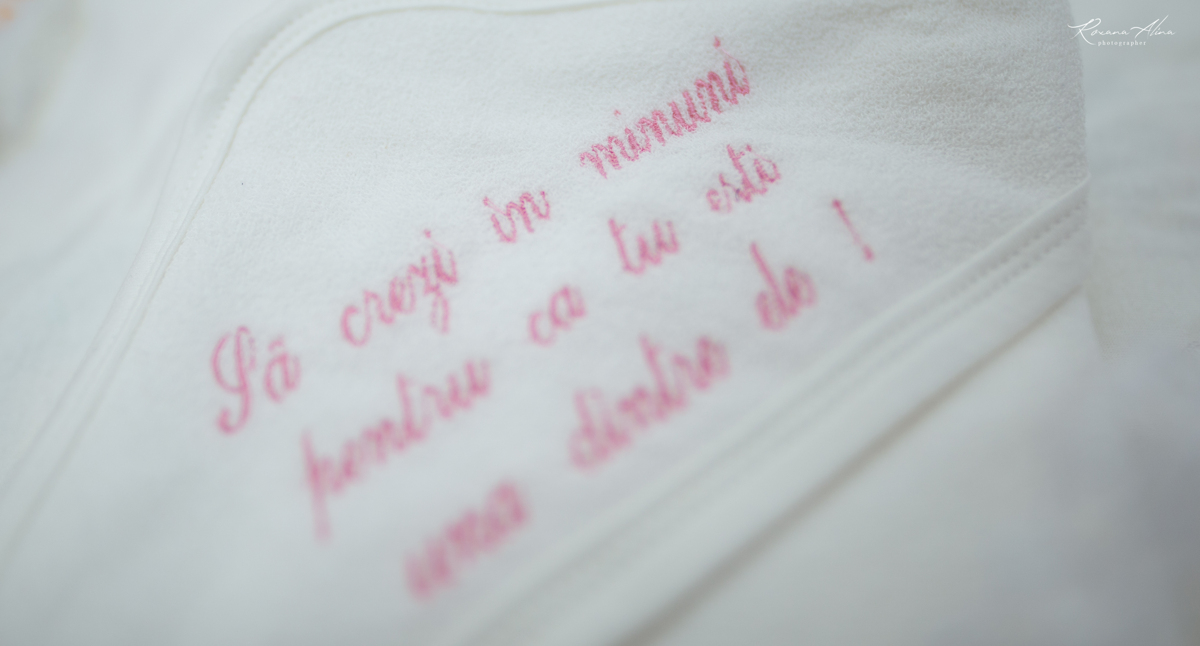 Să crezi in minuni
pentru ca tu esti
una dintre ele !
Roxana Alina
photographer